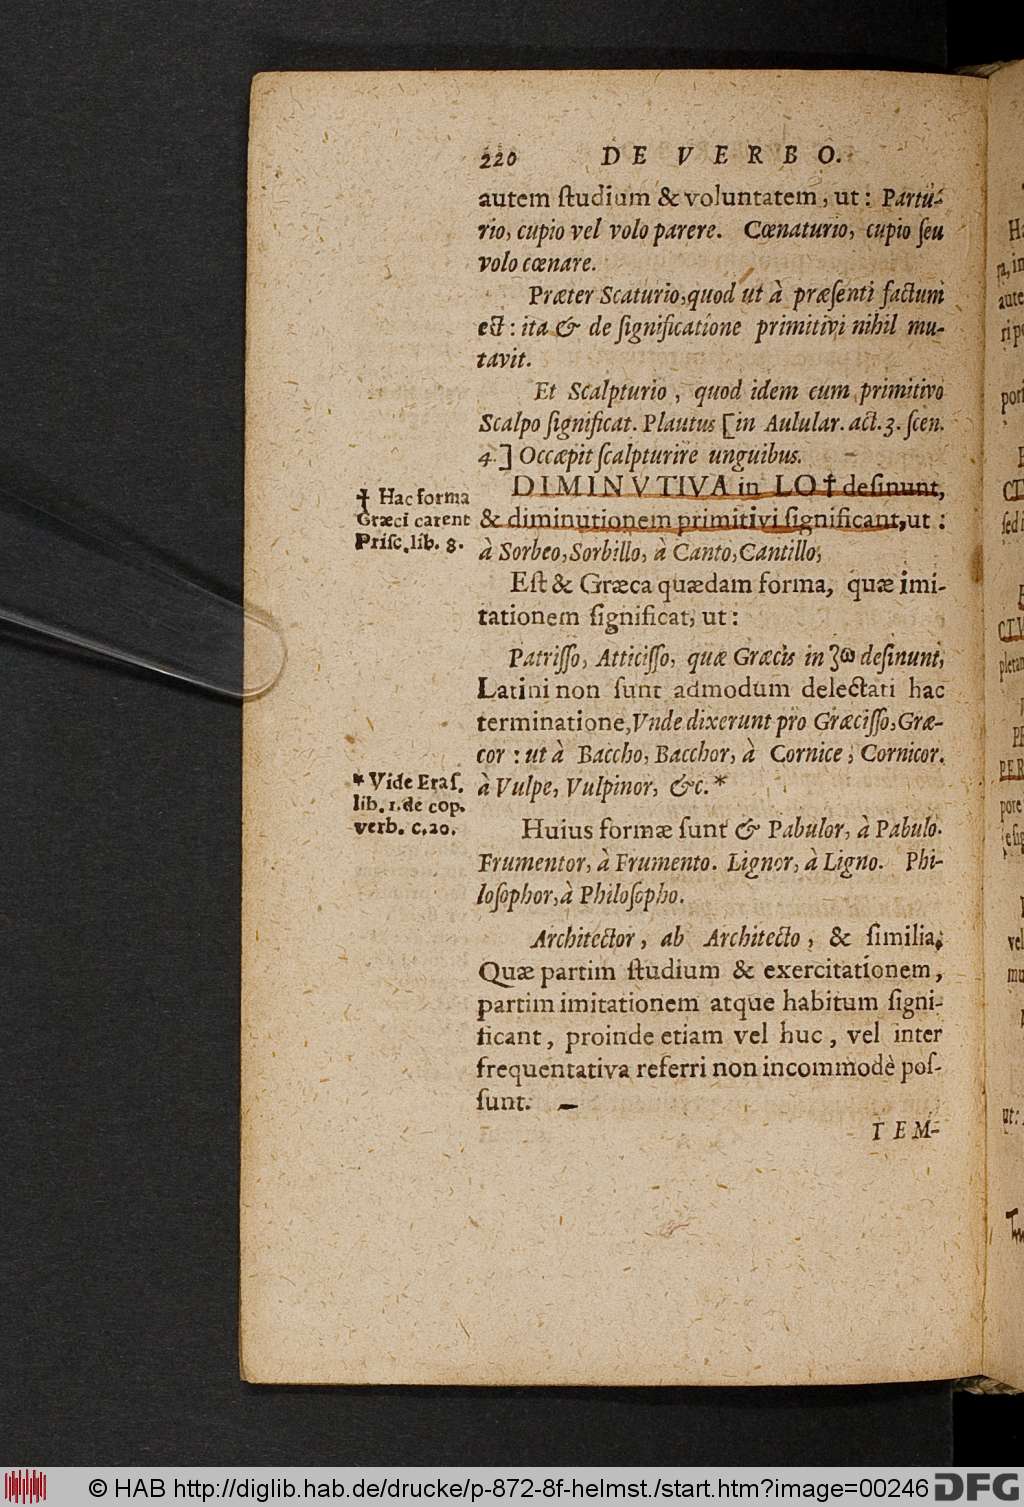 220 DE VERBO.
autem ſtudium & voluntatem, ut: Partu-
rio, cupio vel volo parere. Cœnaturio, cupio ſeu
volo cœnare.
Præter Scaturio, quod ut à præſenti factum
est: ita & de ſignificatione primitivi nihil mu-
tavit.
Et Scalpturio, quod idem cum primitivo
Scalpo ſignificat. Plautus [in Aulular. act. 3. ſcen.
4.] Occæpit ſcalpturire unguibus.
DIMINVTIVA in LO † deſinunt,
& diminutionem primitivi ſignificant, ut:
à Sorbeo, Sorbillo, à Canto, Cantillo,
Eſt & Græca quædam forma, quæ imi-
tationem ſignificat, ut:
Patriſſo, Atticiſſo, quæ Græcis in ζω deſinunt,
Latini non ſunt admodum delectati hac
terminatione, Vnde dixerunt pro Græciſſo, Græ-
cor: ut à Baccho, Bacchor, à Cornice, Cornicor.
à Vulpe, Vulpinor, &c. *
Huius formæ ſunt & Pabulor, à Pabulo.
Frumentor, à Frumento. Lignor, à Ligno. Phi-
loſophor, à Philoſopho.
Architector, ab Architecto, & ſimilia,
Quæ partim ſtudium & exercitationem,
partim imitationem atque habitum ſigni-
ficant, proinde etiam vel huc, vel inter
frequentativa referri non incommodè poſ-
ſunt. –
TEM-
† Hac forma
Græci carent
Priſc. lib. 8.
* Vide Eraſ.
lib. 1. de cop.
verb. c. 20.
© HAB http://diglib.hab.de/drucke/p-872-8f-helmst./start.htm?image=00246 DFG